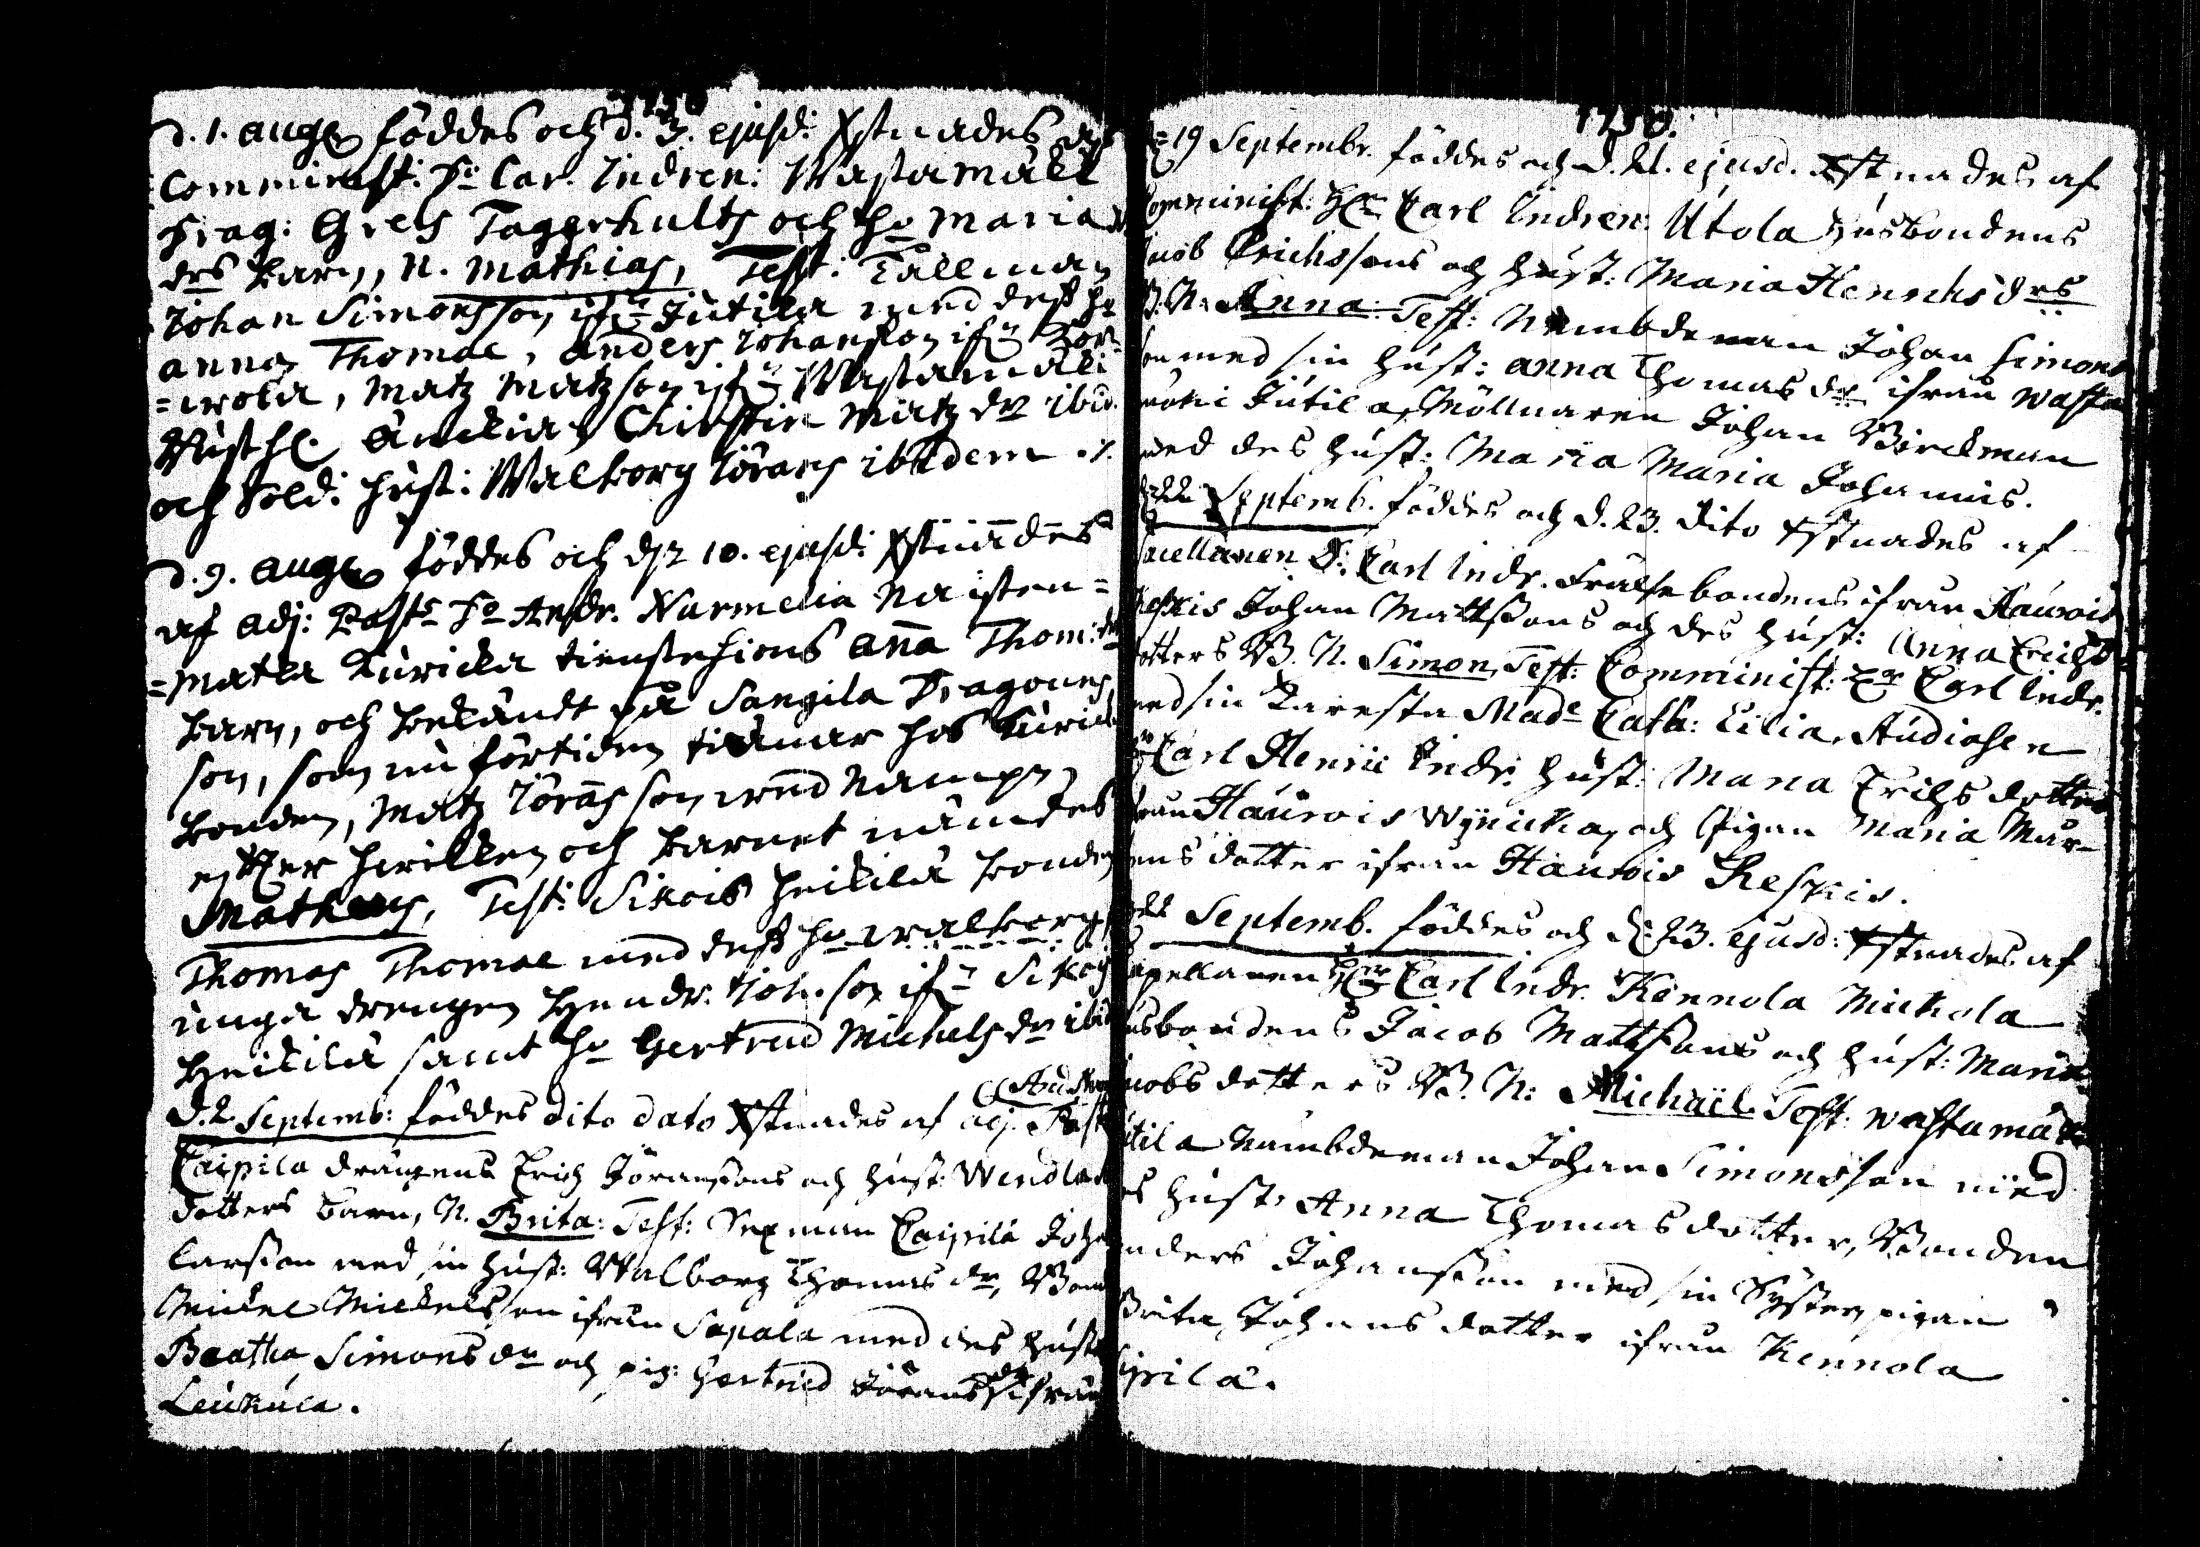 1730
d. 1. aug: föddes och d. 3. ejusd: Xstnades af
Comminist: Hr Car. Indren: Wastamäki
Drag: Grels Taggerhults och ho Maria
drs barn, N. Mathias, Test: Tallman
Johan Simonsson ifn Jutila med dess ho
anna Thomae, anders Johansson ifn
=wola, Matz Matzson ifn Wastamäki
Christin Matz dr ibid.
och Sold: hust: Walborg Jörans ibidem ./.
d. 9. aug: föddes och d 10. ejusd: Xstnades
af adj: Past: Hr Andr. Nurmelia Naisten=
=matka Kuricka tienstehions Anna Thom: dr
barn, och bekändt på Sangila Dragones
son, som nu förtiden tienar hos Kuricka
bonden, Matz Jöransson wed nampn
efter hwilken och barnet nämdes
Mathias, Test: Sikois Heikilä bonden
Thomas Thomae med dess ho walborg,
unga drengen Hendr. Joh. son ifn Sikois
Heikilä samt ho Gertrud Michels dr ibid
d. 2 Septemb: föddes dito dato Xstnades af adj. Past
Caipila drängens Erich Jöranssons och hust: Wendla
dotters barn, N. Brita: Test: Sexman Caipila Joh
Larsson med sin hust: Walborg Thomas dr, Bond
Mickel Mickelsson ifrån Sapala med des hust
Beatha Simons dr och pig: Gertrud Jörans dr ifrån
Leukula.
1730.
19 Septembr. föddes och d. 21. ejusd. Xstnades af
Comminist: Hr Carl Indren: Utola Husbondens
Jacob Erichssons och hust: Maria Henrichsdrs
B. N. Anna. Test: Nämbdeman Johan Simons
son med sin hust: anna Thomas dr ifrån wasta
mäki Jutila, Möllnaren Johan Birckman
med des hust: Maria Maria Johannis.
Septemb. föddes och d. 23. dito Xstnades af
Sacellanen H: Carl Indr. Frälse bondens ifrån Haurois
Reskis Johan Mattssons och des hust: Anna Erichs
dotters B. N. Simon, Test: Comminist: Hr Carl Indr.
med sin Käresta Mad: Cath: Lilia, Studiosen
Hr Carl Henric Indr: hust: Maria Erichs dotter
ifrån Haurois Wynicka, och Pigan Maria Mår-
tens dotter ifrån Haurois Reskis.
Septemb. föddes och d. 23. ejusd: Xstnades af
Capellanen Hr Carl Indr. Kennola Mickola
Husbondens Jacob Mattssons och hust: Maria
Jacobs dotters B. N: Michaël. Test: wastamäki
Jutila Nämbdeman Johan Simonsson med
des hust: Anna Thomas dotter, Bonden
Anders Johansson med sin Syster pigan
Brita Johans dotter ifrån Kennola
pila.